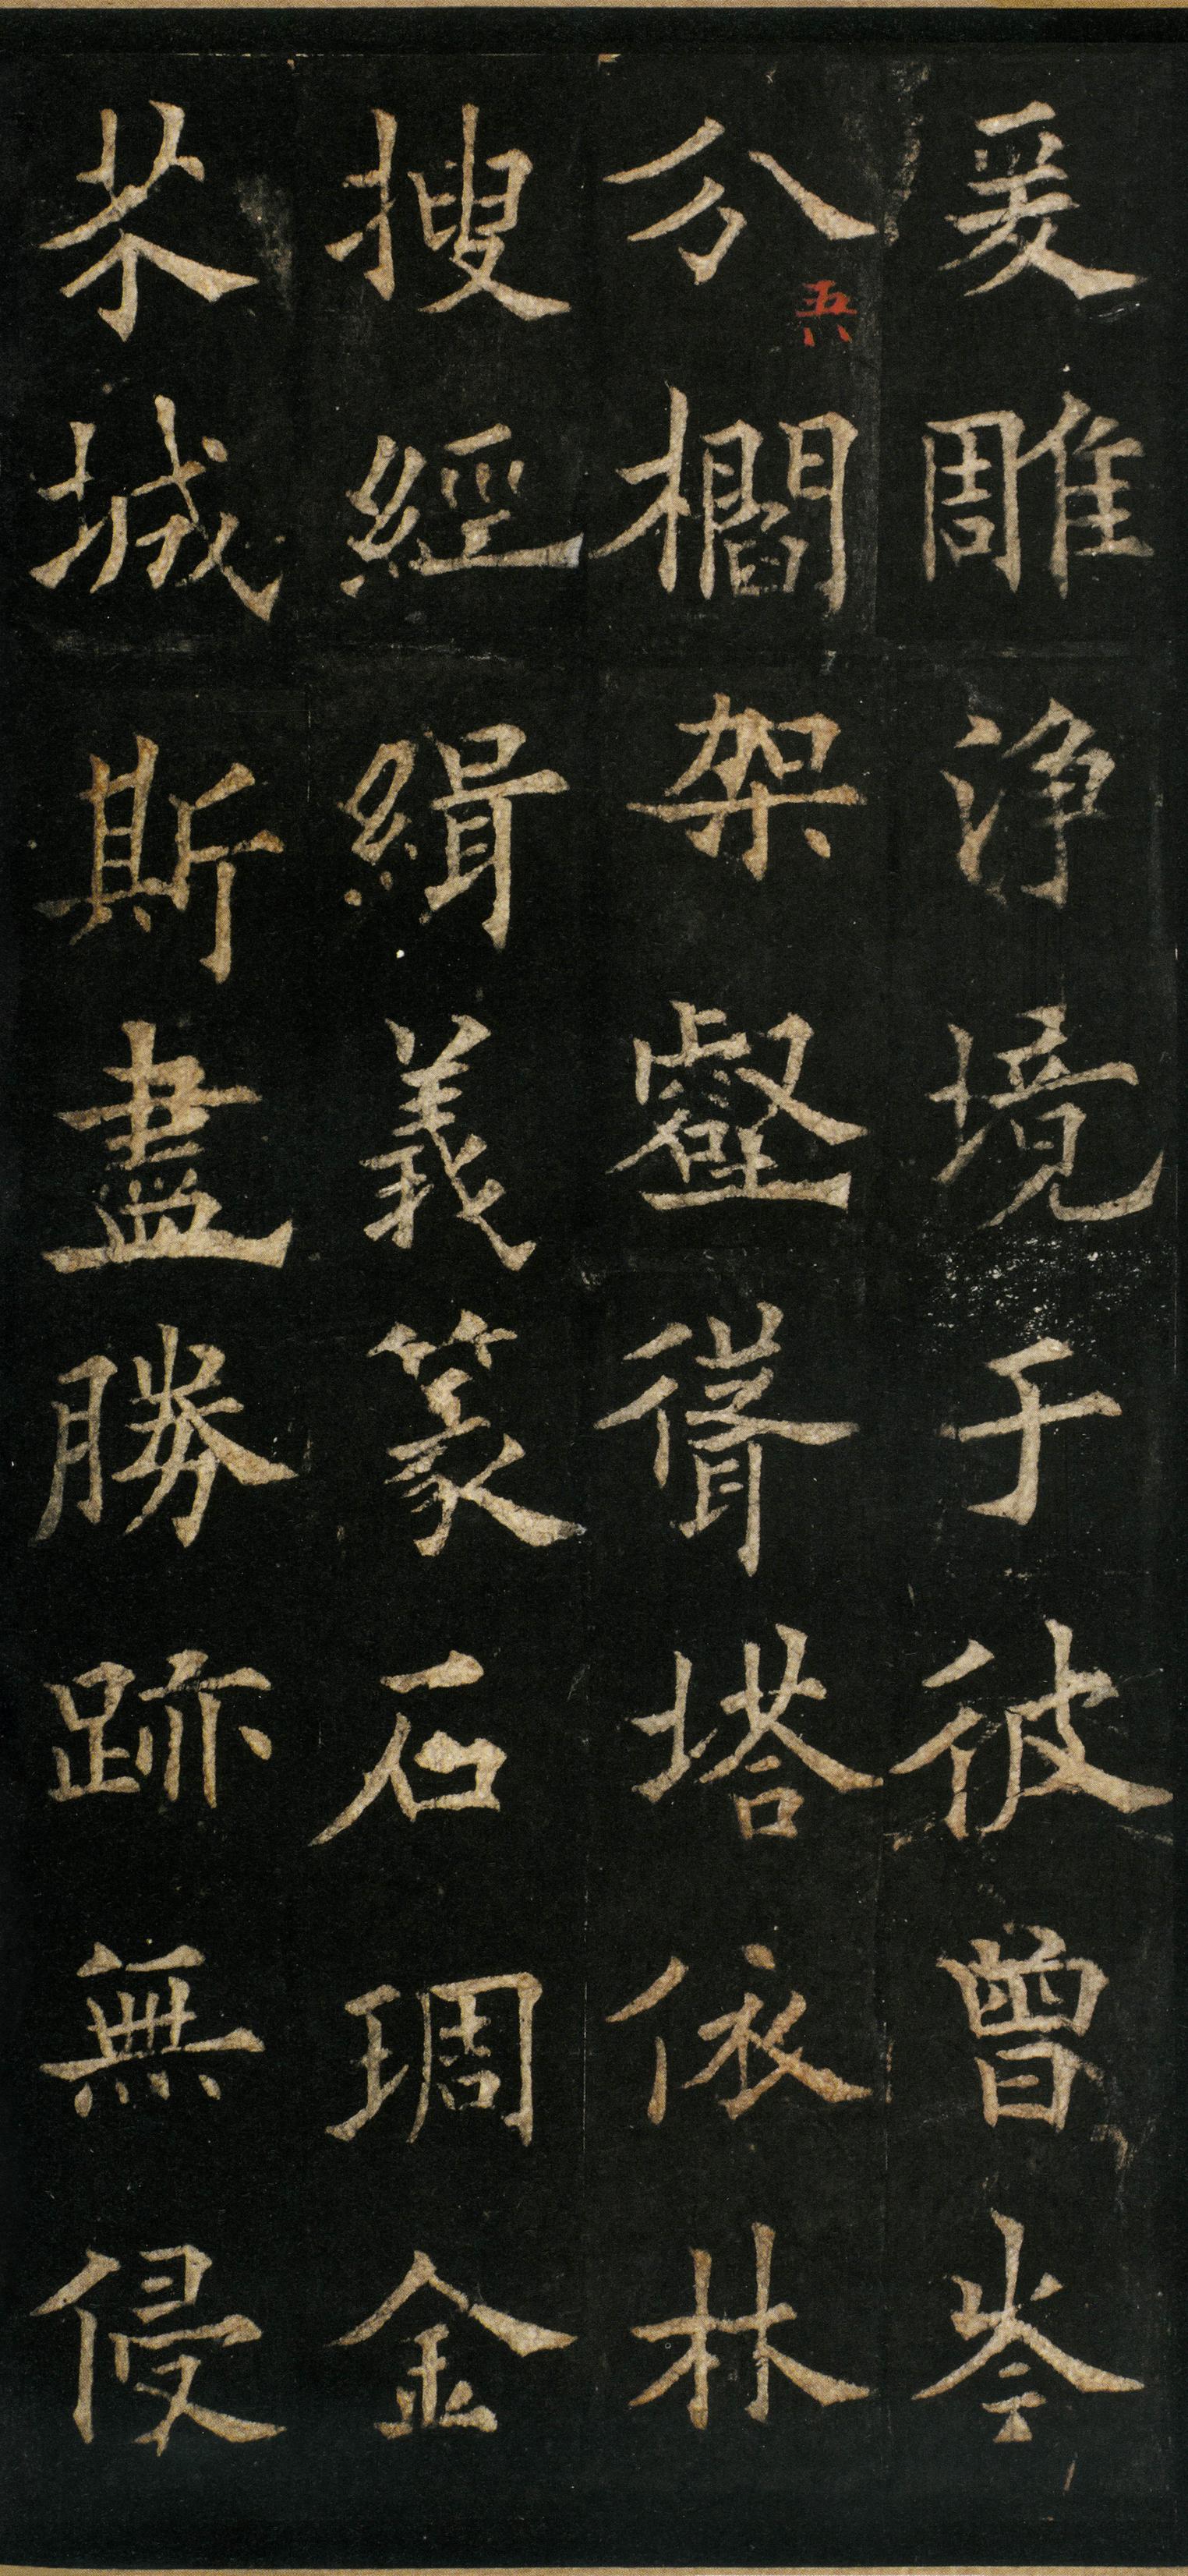 爰雕浄境于彼曾岑
分櫩架壑聳塔依林
搜經緝義篆石琱金
芥城斯盡勝跡無侵